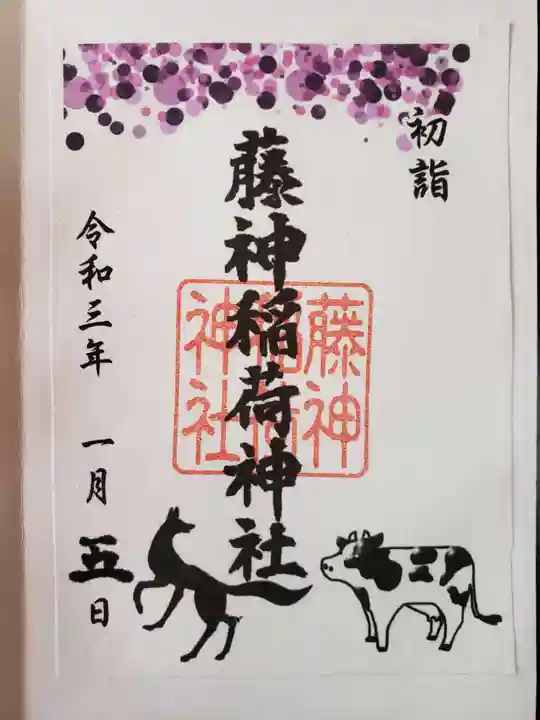 初詣
藤神稲荷神社
藤神
稲荷
神社
令和三年 一月五日